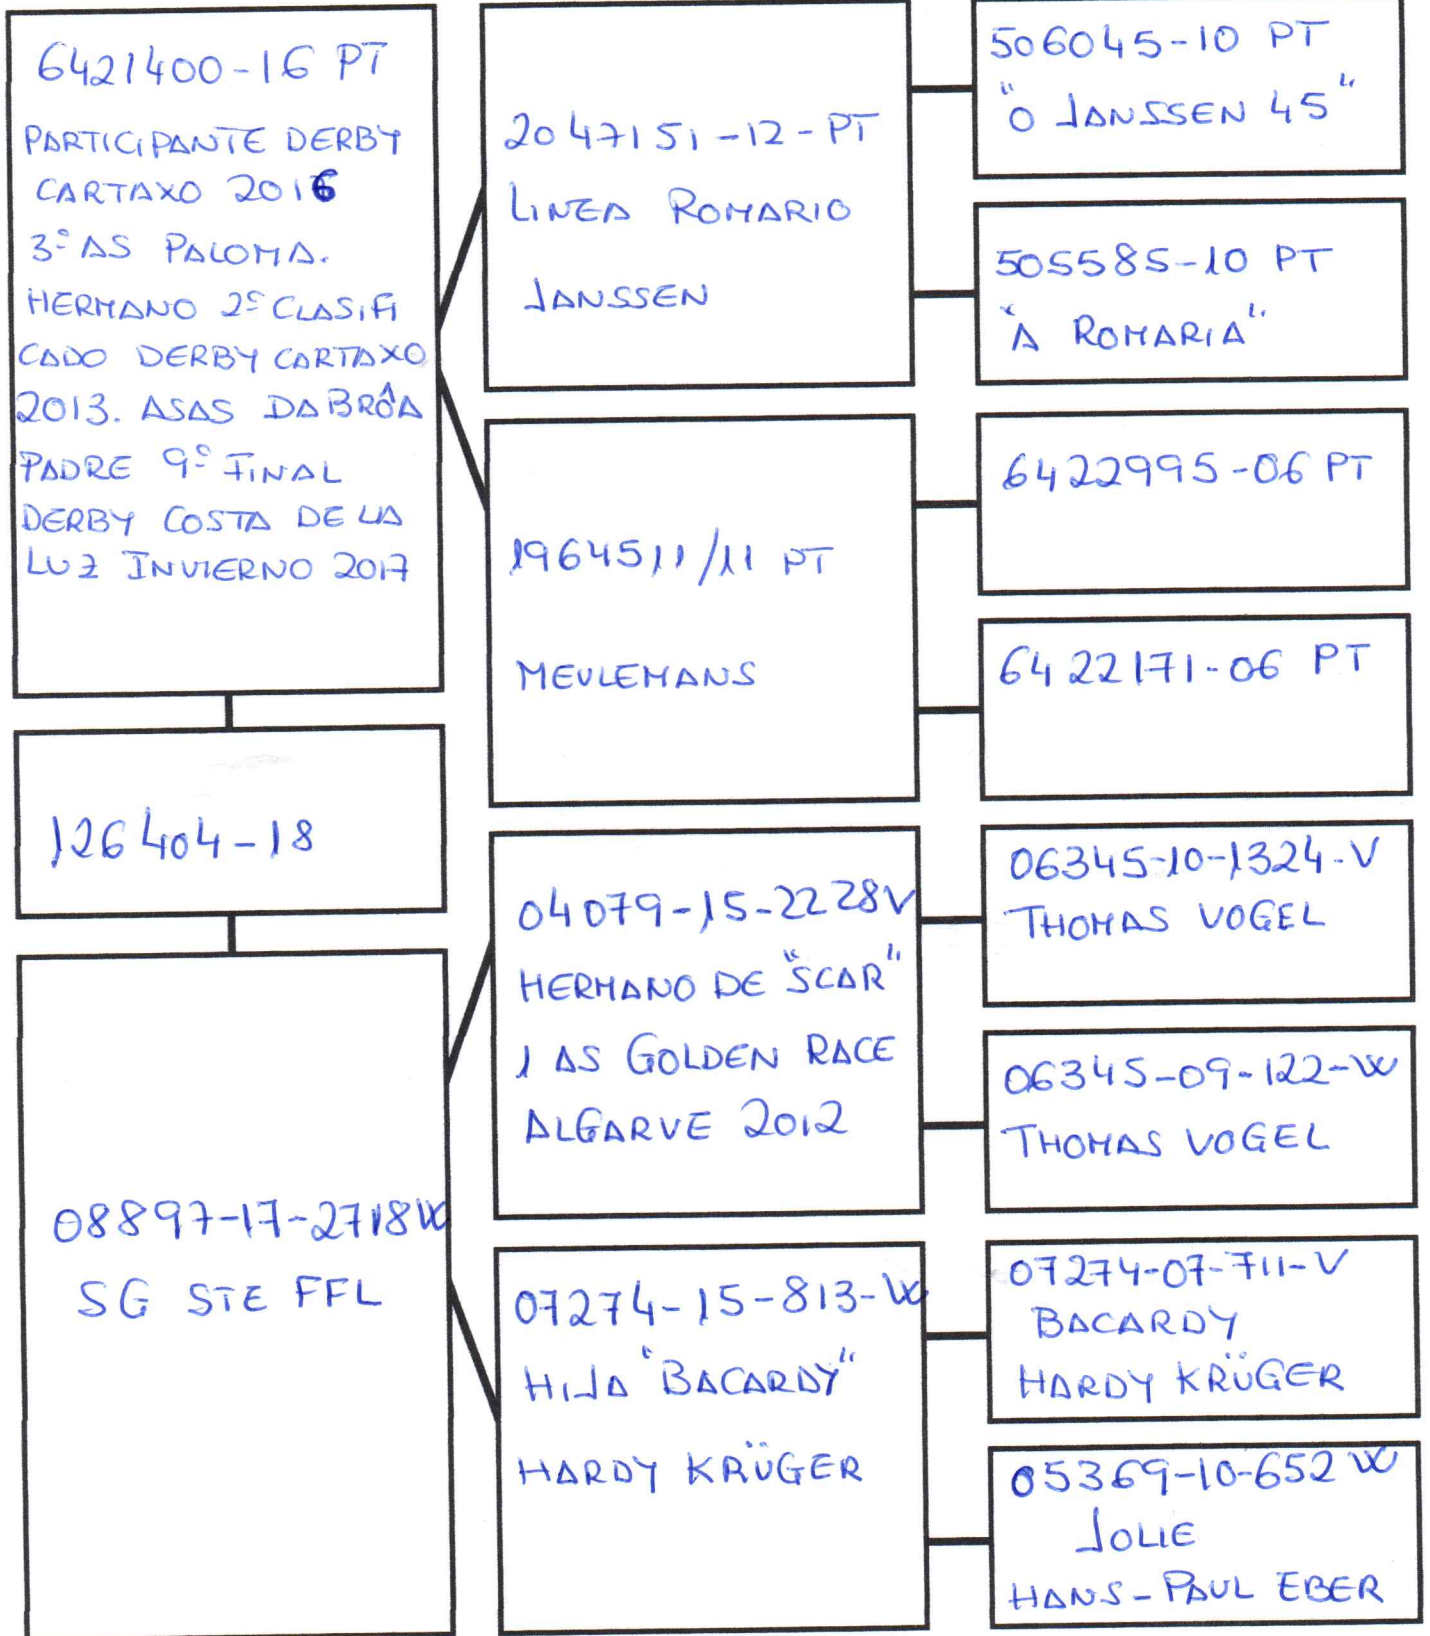 6421400-16 PT
PARTICIPANTE DERBY
CARTAXO 2016
3º AS PALOMA.
HERMANO 2º CLASIFI
CADO DERBY CARTAXO
2013. ASAS DA BRÔA
PADRE 9º FINAL
DERBY COSTA DE LA
LUZ INVIERNO 2017
126404-18
08897-17-2718W
SG STE FFL
2047151-12-PT
LINEA ROMARIO
JANSSEN
1964511/11 PT
MEULEMANS
04079-15-2228V
HERMANO DE "SCAR"
1 AS GOLDEN RACE
ALGARVE 2012
07274-15-813-W
HIJA "BACARDY"
HARDY KRÜGER
506045-10 PT
"O JANSSEN 45"
505585-10 PT
"A ROMARIA"
6422995-06 PT
6422171-06 PT
06345-10-1324-V
THOMAS VOGEL
06345-09-122-W
THOMAS VOGEL
07274-07-711-V
BACARDY
HARDY KRÜGER
05369-10-652 W
JOLIE
HANS-PAUL EBER